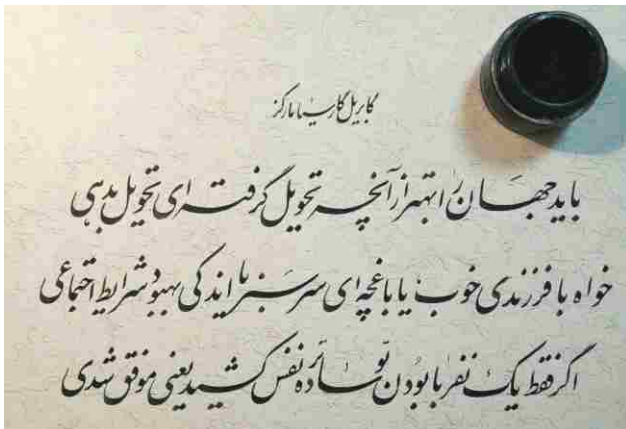 گابریل گارسیا مارکز
باید جهان را بهتر از آنچه تحویل گرفته ای تحویل بدهی
خواه با فرزندی خوب یا باغچه ای سرسبز یا اندکی بهبود شرایط اجتماعی
اگر فقط یک نفر با بودن تو ساده نفس کشید یعنی موفق شدی